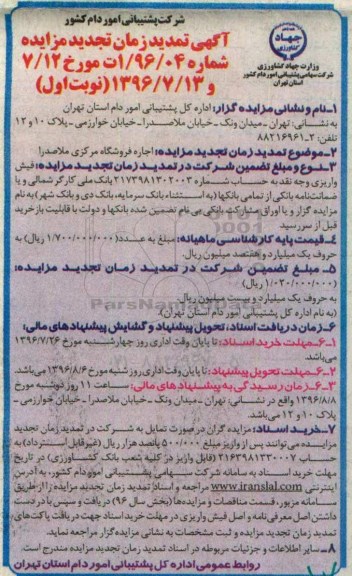 شرکت پشتیبانی امور دام کشور
آگهی تمدید زمان تجدید مزایده
شماره ۱/۹۶/۰۴ت مورخ ۷/۱۲
و ۱۳۹۶/۷/۱۳ (نوبت اول)
جهاد
کشاورزی
وزارت جهاد کشاورزی
شرکت سهامی پشتیبانی امور دام کشور
استان تهران
۱-نام و نشانی مزایده گزار: اداره کل پشتیبانی امور دام استان تهران
به نشانی: تهران - میدان ونک - خیابان ملاصدرا - خیابان خوارزمی - پلاک ۱۰ و ۱۲
تلفن: ۲-۸۸۲۱۶۹۶۱
۲-موضوع تمدید زمان تجدید مزایده: اجاره فروشگاه مرکزی ملاصدرا
۳-نوع و مبلغ تضمین شرکت در تمدید زمان تجدید مزایده: فیش
واریزی وجه نقد به حساب شماره ۲۱۷۳۹۸۱۳۰۲۰۰۳ بانک ملی کارگر شمالی و یا
ضمانتنامه بانکی از تمامی بانکها (به استثناء بانک سرمایه، بانک دی و بانک شهر) به نام
مزایده گزار و یا اوراق مشارکت بانکی بی نام تضمین شده بانکها و دولت با قابلیت بازخرید
قبل از سررسید
۴-قیمت پایه کارشناسی ماهیانه: مبلغ به عدد (۱/۷۰۰/۰۰۰/۰۰۰ ریال) به
حروف یک میلیارد و هفتصد میلیون ریال.
۵- مبلغ تضمین شرکت در تمدید زمان تجدید مزایده:
(۱/۰۲۰/۰۰۰/۰۰۰ ریال)
به حروف یک میلیارد و بیست میلیون ریال.
(به نام اداره کل پشتیبانی امور دام استان تهران)
۶-زمان دریافت اسناد، تحویل پیشنهاد و گشایش پیشنهادهای مالی:
۱-۶-مهلت خرید اسناد: تا پایان وقت اداری روز چهارشنبه مورخ ۱۳۹۶/۷/۲۶
می‌باشد.
۲-۶-مهلت تحویل پیشنهاد: تا پایان وقت اداری روز شنبه مورخ ۱۳۹۶/۸/۶ می‌باشد.
۳-۶-زمان رسیدگی به پیشنهادهای مالی: ساعت ۱۱ روز دوشنبه مورخ
۱۳۹۶/۸/۸ واقع در نشانی: تهران - میدان ونک - خیابان ملاصدرا - خیابان خوارزمی -
پلاک ۱۰ و ۱۲ می‌باشد.
۷-خرید اسناد: مزایده گران در صورت تمایل به شرکت در تمدید زمان تجدید
مزایده می توانند پس از واریز مبلغ ۵۰۰/۰۰۰ پانصد هزار ریال (غیر قابل استرداد) به
حساب ۲۱۶۳۹۸۱۳۳۰۰۰۷ (قابل واریز در کلیه شعب بانک کشاورزی) در تاریخ
مهلت خرید اسناد به سامانه شرکت سهامی پشتیبانی امور دام کشور، به آدرس
اینترنتی www.iranslal.com مراجعه و اسناد تمدید زمان تجدید مزایده را از طریق
سامانه مزبور، قسمت مناقصات و مزایده‌ها (بخش سال ۹۶) دریافت و سپس با در دست
داشتن اصل معرفی نامه و اصل فیش واریزی در مهلت خرید اسناد جهت دریافت پاکت‌های
تمدید زمان تجدید مزایده و ثبت مشخصات به نشانی مزایده گزار مراجعه نماید.
۸-سایر اطلاعات و جزئیات مربوطه در اسناد تمدید زمان تجدید مزایده مندرج است.
روابط عمومی اداره کل پشتیبانی امور دام استان تهران